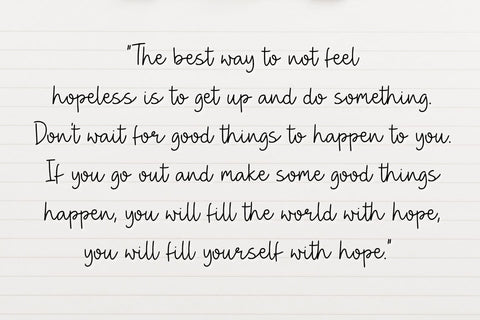 "The best way to not feel
hopeless is to get up and do something.
Don't wait for good things to happen to you.
If you go out and make some good things
happen, you will fill the world with hope,
you will fill yourself with hope."